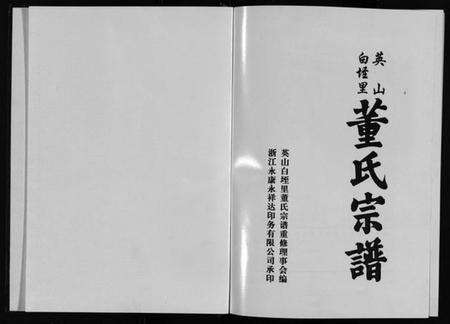 英山
白垤里
董氏宗譜
英山白垤里董氏宗谱重修理事会编
浙江永康永祥达印务有限公司承印